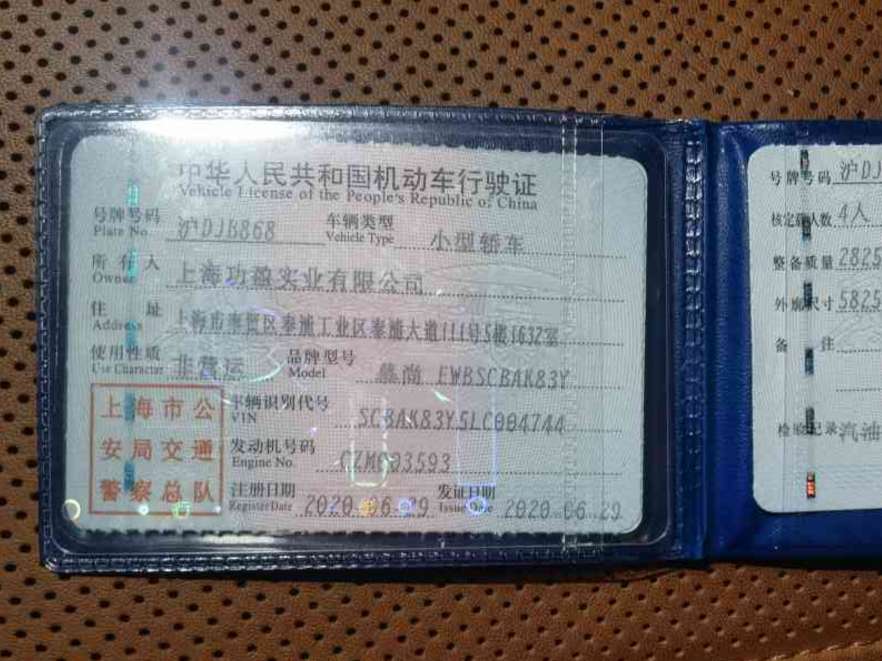 中华人民共和国机动车行驶证
Vehicle License of the People's Republic of China
号牌号码 沪DJB868 车辆类型 小型轿车
Plate No. Vehicle Type
所有人 上海功盈实业有限公司
Owner
住址 上海市奉贤区奉浦工业区奉浦大道111号5楼1632室
Address
使用性质 非营运 品牌型号 慕尚 EWBSCBAK83Y
Use Character Model
上海市公
安局交通
警察总队
车辆识别代号 SCBAK83Y5LC004744
VIN
发动机号码 CZM003593
Engine No.
注册日期 2020 06 29 发证日期 2020 06 29
Register Date Issue Date
号牌号码 沪DJ
核定载人数 4人
整备质量 2825
外廓尺寸 5825
备注
检验记录 汽油